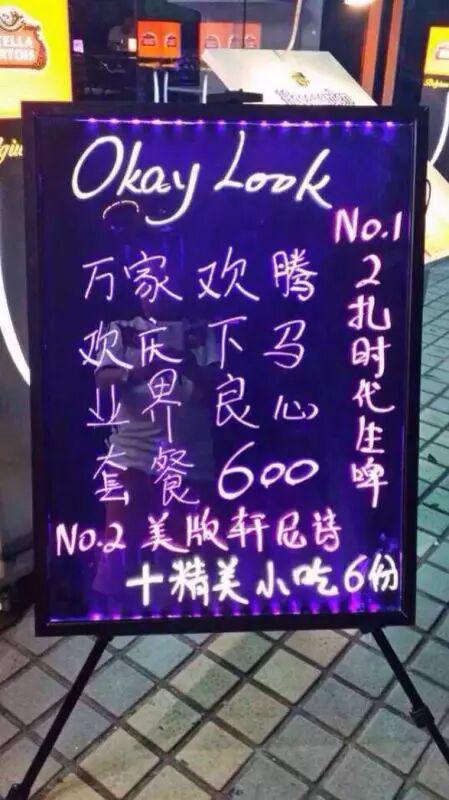 Okay Look
万家欢腾
欢庆下马
业界良心
套餐600
No.1
2扎时代生啤
No.2 美版轩尼诗
+精美小吃6份